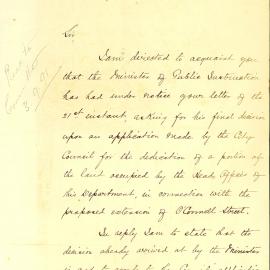 Sir
I am directed to acquaint you
that the Minister of Public Instruction
has had under notice your letter of the
21st instant, asking for his final decision
upon an application made by the City
Council for the dedication of a portion of
the land occupied by the Head Office of
this Department, in connection with the
proposed extension of O'Connell Street.
In reply I am to state that the
decision already arrived at by the Minister